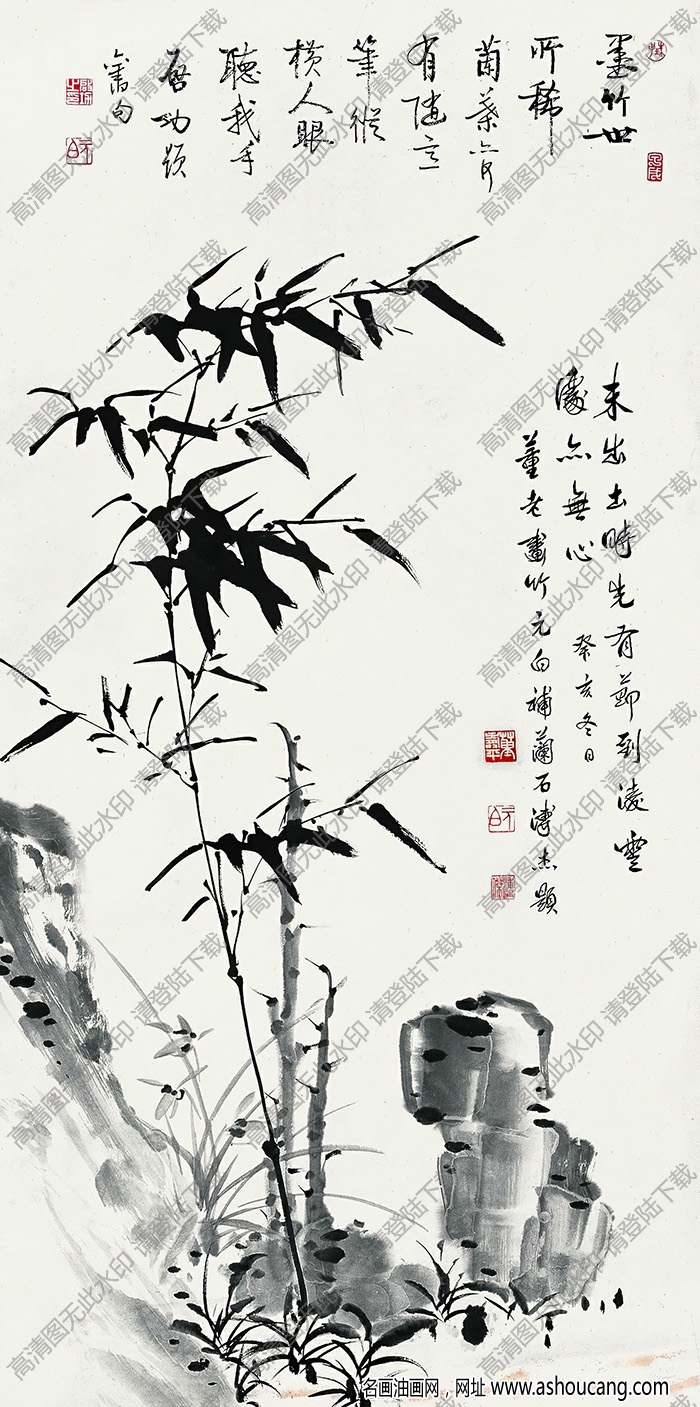 墨竹世
所稀
蘭葉六月
有隨意
筆縱
橫人眼
聽我手
啓功題
舊句
未出土時先有節到凌雲
處亦無心
癸亥冬日
董老畫竹元白補蘭石溥杰題
高清图无此水印 请登陆下载
名画油画网，网址 www.ashoucang.com